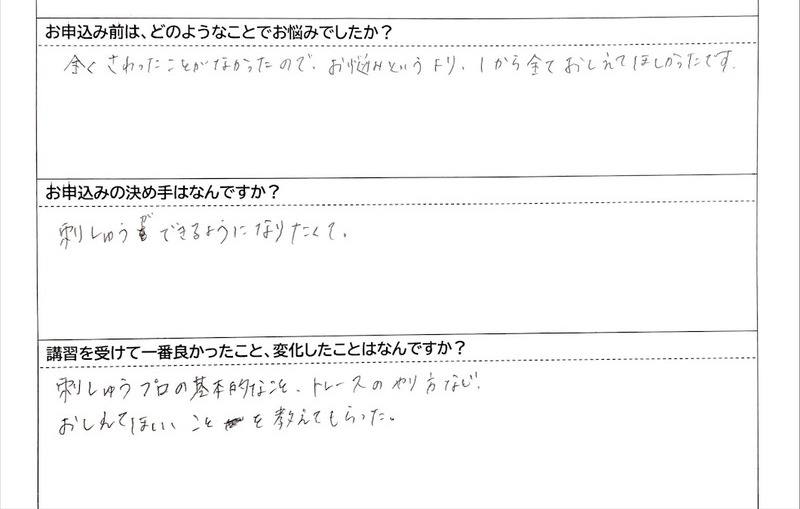 お申込み前は、どのようなことでお悩みでしたか？
全くさわったことがなかったので、お悩みというより、1から全ておしえてほしかったです.
お申込みの決め手はなんですか？
刺しゅうができるようになりたくて。
講習を受けて一番良かったこと、変化したことはなんですか？
刺しゅうプロの基本的なこと、トレースのやり方など.
おしえてほしいことを教えてもらった。